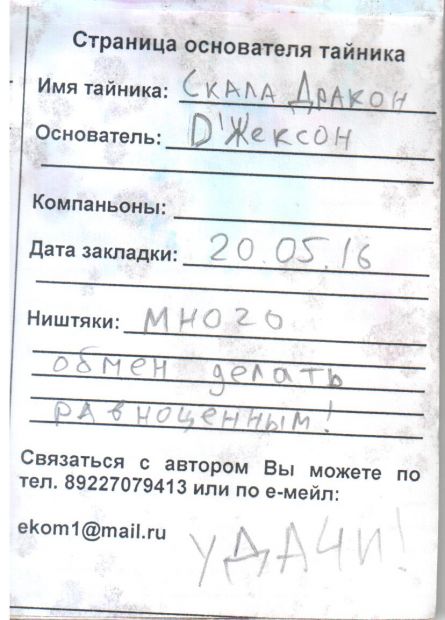 Страница основателя тайника
Имя тайника: Скала Дракон
Основатель: D'Жексон
Компаньоны:
Дата закладки: 20.05.16
Ништяки: много
обмен делать
равноценным!
Связаться с автором Вы можете по
тел. 89227079413 или по е-мейл:
ekom1@mail.ru
удАЧи!